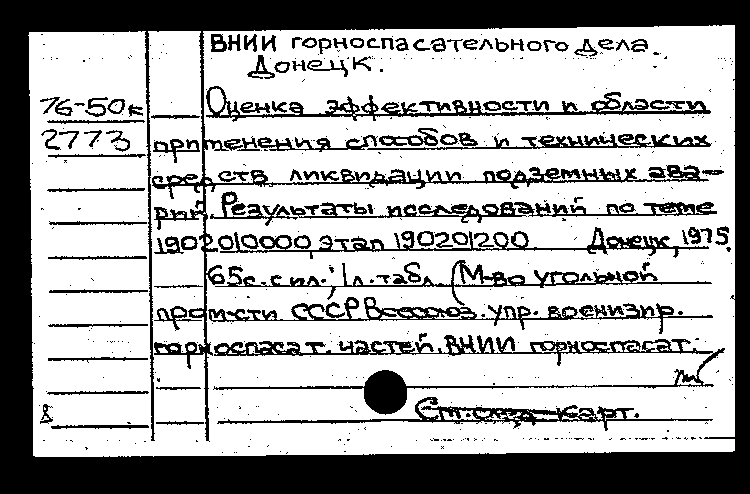 ВНИИ горноспасательного дела.
Донецк.
76-50к Оценка эффективности и области
2773 применения способов и технических
средств ликвидации подземных ава-
рий. Результаты исследований по теме
1902010000, этап 190201200. Донецк, 1975.
65с. с ил.; 1л. табл. (М-во угольной
пром-сти СССР Всесоюз. упр. военизир.
горноспасат. частей. ВНИИ горноспасат.
См. след. карт.